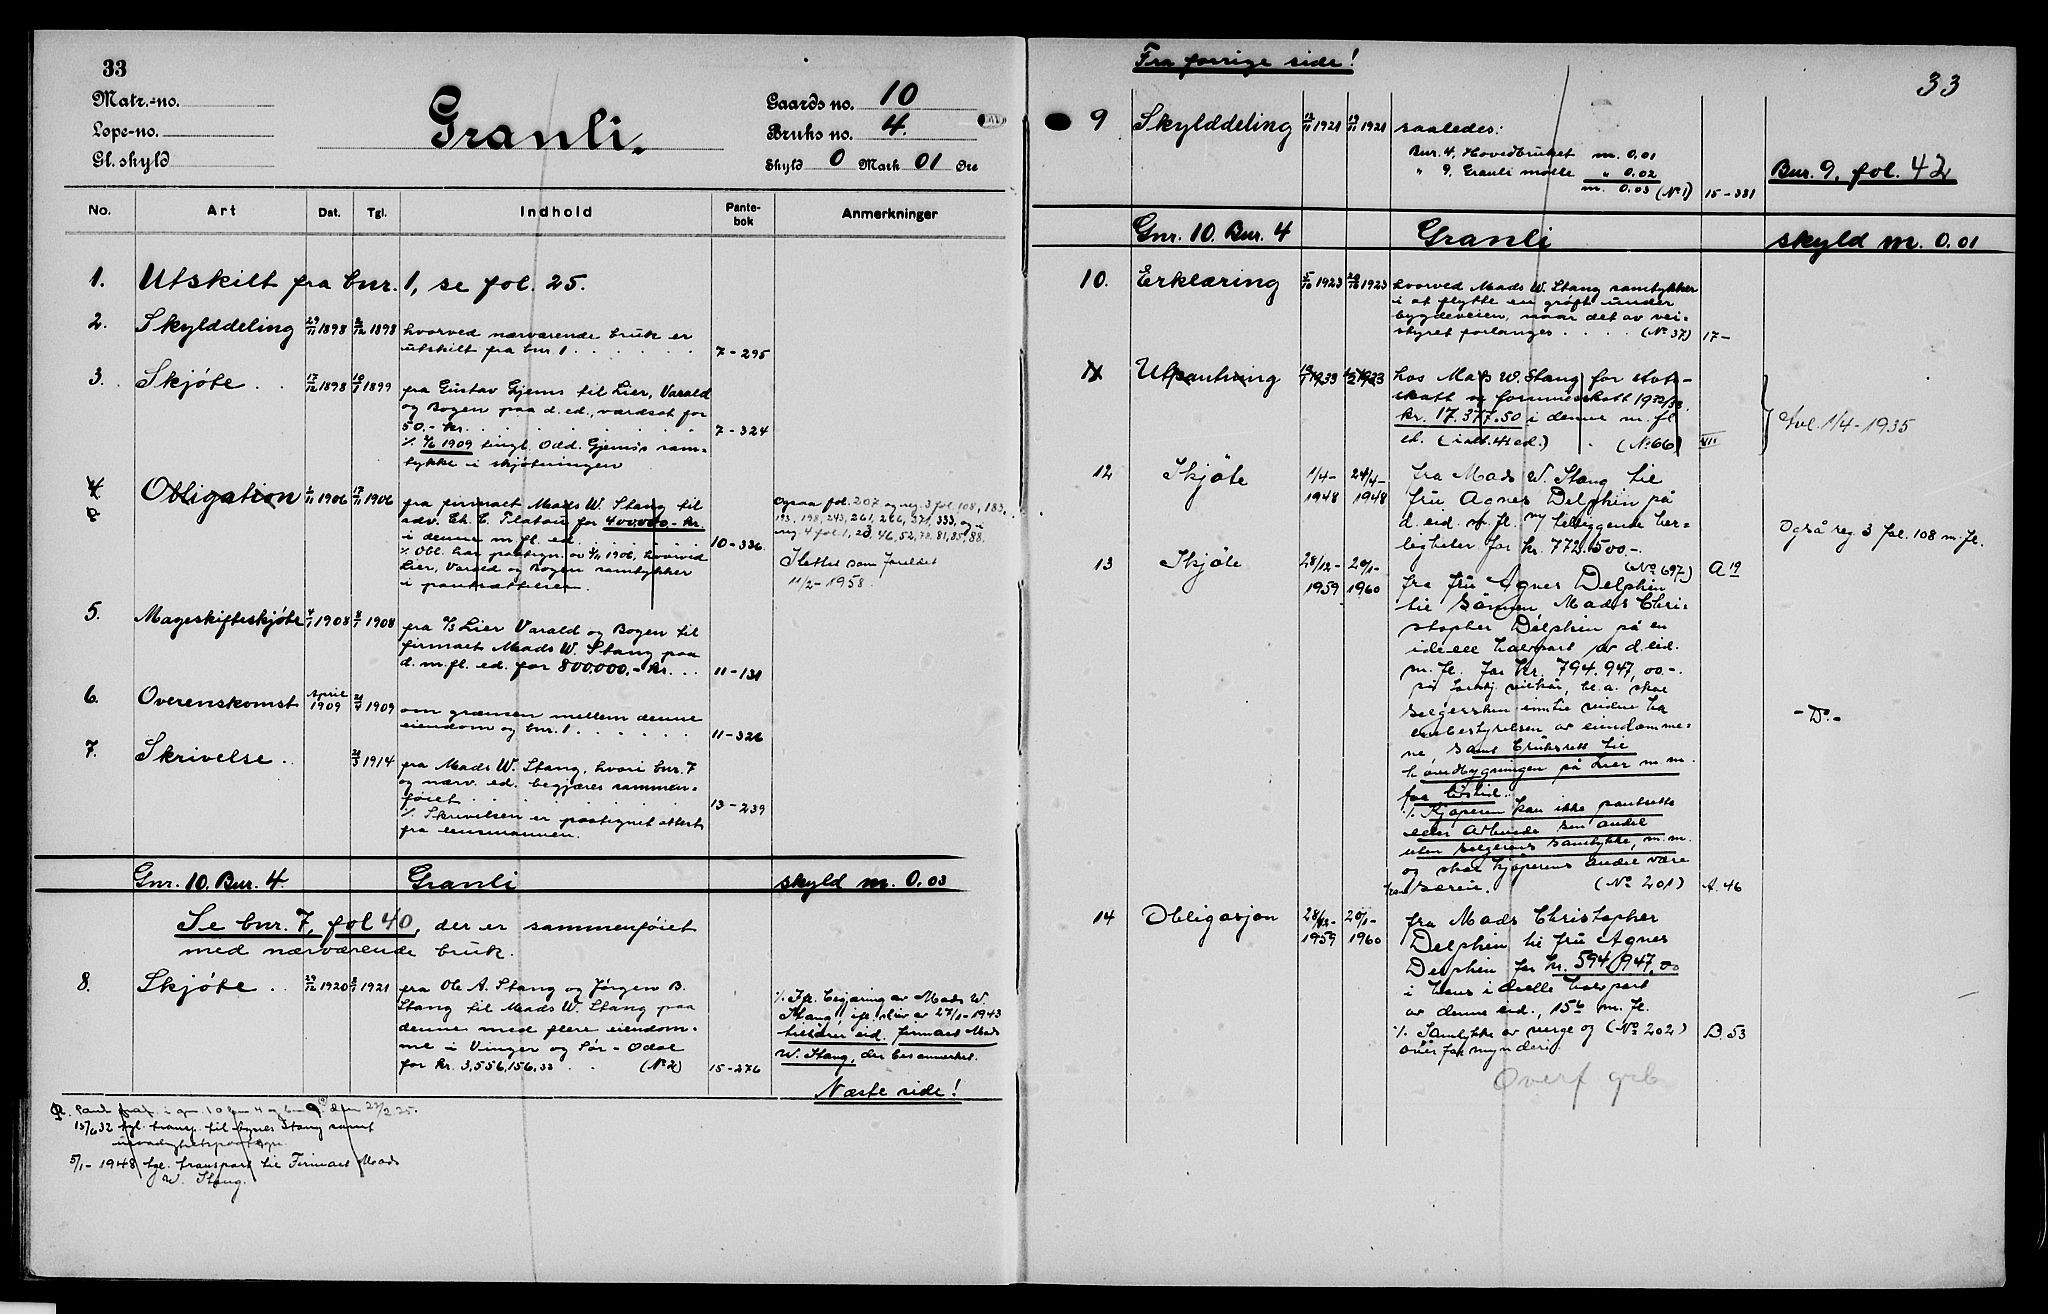 33
Matr.-no.
Løpe-no.
Gl. skyld
Granli.
Gaards no. 10
Bruks no. 4.
Skyld 0 Mark 01 Øre
No. Art Dat. Tgl. Indhold Pante-bok Anmerkninger
1. Utskilt fra bnr. 1, se fol. 25.
2. Skylddeling 29/11 1898 2/12 1898 hvorved nærværende bruk er
utskilt fra bnr. 1 . . . . . . 7-295
3. Skjøte . . 17/12 1898 10/1 1899 fra Gustav Gjems til Lier, Varald
og Bogen paa d. ed., værdsat for
50.- kr. . . . . . . . 7-324
./. 4/6 1909 tingl. Odd. Gjems's sam-
tykke i skjøtningen
4 Obligation 1/11 1906 17/11 1906 fra firmaet Mads W. Stang til
adv. Ch. E. Platou for 400,000.- kr.
i denne m. fl. ed. . . . . 10-336
./. Obl. har paategn. av 4/11 1906, hvorved
Lier, Varald og Bogen samtykker
i pantsættelsen.
Ogsaa fol. 207 og reg. 3 fol. 108, 183,
193, 198, 243, 261, 266, 271, 333, og i
reg. 4 fol. 1, 23, 46, 52, 78, 81, 85, 88.
Slettet som foreldet
11/2-1958.
5. Mageskifteskjøte 7/1 1908 8/1 1908 fra A/S Lier Varald og Bogen til
firmaet Mads W. Stang paa
d. m. fl. ed. for 800,000.- kr. . . 11-131
6. Overenskomst April 1909 21/4 1909 om grænsen mellem denne
eiendom og bnr. 1 . . . . . . 11-326
7. Skrivelse . . 21/3 1914 fra Mads W. Stang, hvori bnr. 7
og nærv. ed. begjæres sammen-
føiet . . . . . . . 13-239
./. Skrivelsen er paategnet attest
fra lensmannen.
Gnr. 10. Bnr. 4. Granli skyld m. 0.03
Se bnr. 7, fol 40, der er sammenføiet
med nærværende bruk.
8. Skjøte . . 29/12 1920 8/1 1921 fra Ole A. Stang og Jørgen B.
Stang til Mads W. Stang paa
denne med flere eiendom-
me i Vinger og Sør-Odal
for kr. 3,556,156.33 . . (No 2) 15-276
./. Ifl. begjæring av Mads W.
Stang, ifl. skriv av 27/1-1943
tilhører eid. firmaet Mads
W. Stang, der bes anmerket.
Næste side!
i gnr. 10 bnr 4 og bnr 9
15/6 32 tgl. transp. til Agnes Stang samt
5/1-1948 tgl. transport til Firmaet Mads
W. Stang.
Fra forrige side!
33
9 Skylddeling 12/11 1921 19/11 1921 saaledes:
Bnr. 4, Hovedbruket m. 0.01
" 9, Granli mølle " 0.02
m. 0.03 (No 1) 15-381
Bnr. 9, fol. 42
Gnr. 10. Bnr. 4 Granli skyld m. 0.01
10. Erklæring 5/10 1923 20/10 1923 hvorved Mads W. Stang samtykker
i at flytte en grøft under
bygdeveien, naar det av vei-
styret forlanges . . . . (No 37) 17-
11 Utpantning 1933 1933 hos Mads W. Stang for stats-
skatt og formuesskatt 1932/33.
kr. 17.377.50 i denne m. fl
ed. (i alt 41 ed.) . (No 66) VII
Avl. 1/4-1935
12 Skjøte 1/4-1948 24/4-1948 fra Mads W. Stang til
fru Agnes Delphin på
d. eid m. fl. m/ tilliggende her-
ligheter for kr. 772.500.-
(No 697) A 19
Også reg. 3 fol. 108 m. fl.
13 Skjøte 28/12-1959 20/1-1960 fra fru Agnes Delphin
til sønnen Mads Chri-
stopher Delphin på en
ideell halvpart av d. eid.
m. fl. for kr. 794.947,00-.
på forskj. vilkår, bl. a. skal
selgersken inntil videre ha
enbestyrelsen av eiendomme-
ne samt bruksrett til
hovedbygningen på Lier m. m.
for livstid.
./. Kjøperen kan ikke pantsette
eller avhende sin andel
uten selgerens samtykke, m. m.
og skal kjøperens andel være
hans særeie. (No 201) A. 46
-Do-
14 Obligasjon 28/12-1959 20/1-1960 fra Mads Christopher
Delphin til fru Agnes
Delphin for kr. 594.947,00
i hans ideelle halvpart
av denne eid., 15b m. fl.
./. Samtykke av verge og (No 202) B. 53
overformynderi.
Overf grb